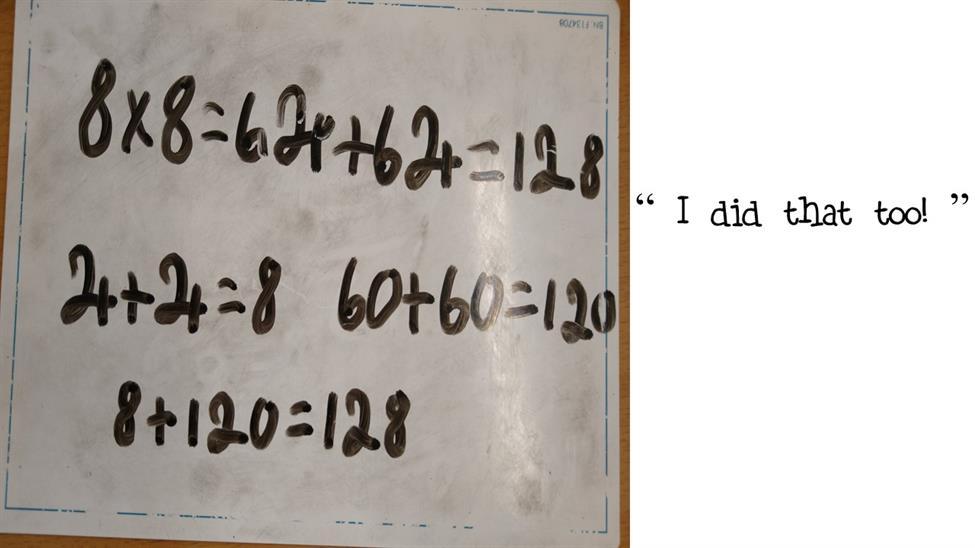 BN: F134708
8×8=64+64=128
4+4=8 60+60=120
8+120=128
“ I did that too! ”